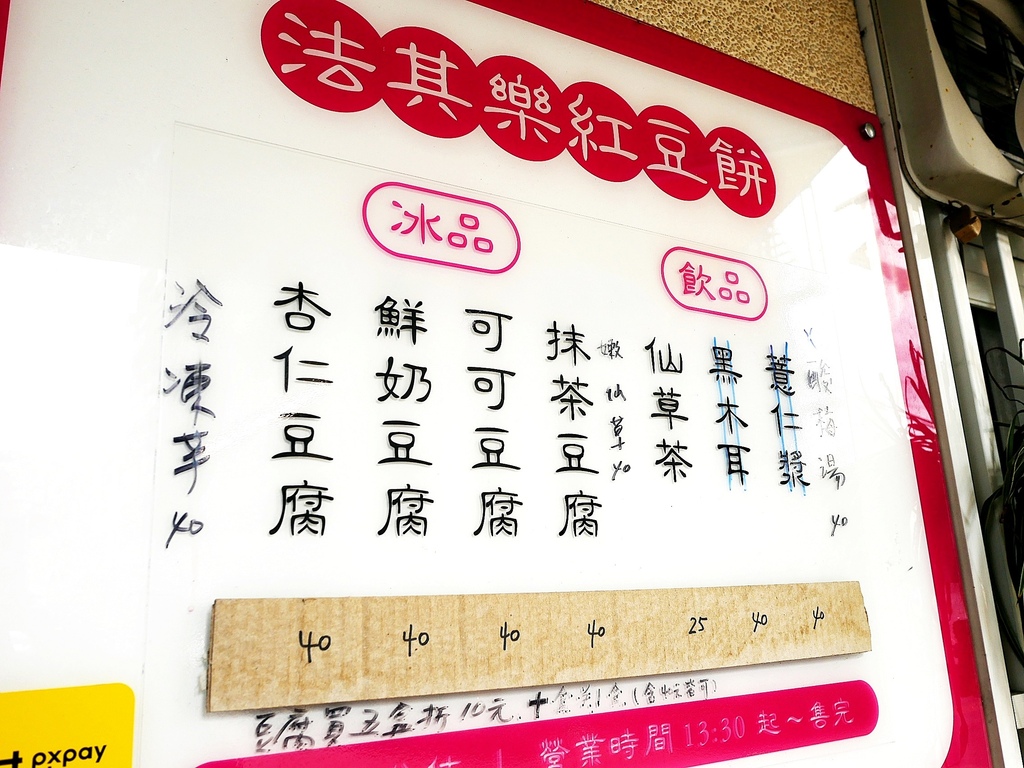 洁其樂紅豆餅
冰品
飲品
冷凍芋 40
杏仁豆腐
鮮奶豆腐
可可豆腐
抹茶豆腐
嫩仙草 40
仙草茶
黑木耳
薏仁漿
酸梅湯 40
40 40 40 40 25 40 40
豆腐買五盒折10元
營業時間 13:30 起~售完
pxpay